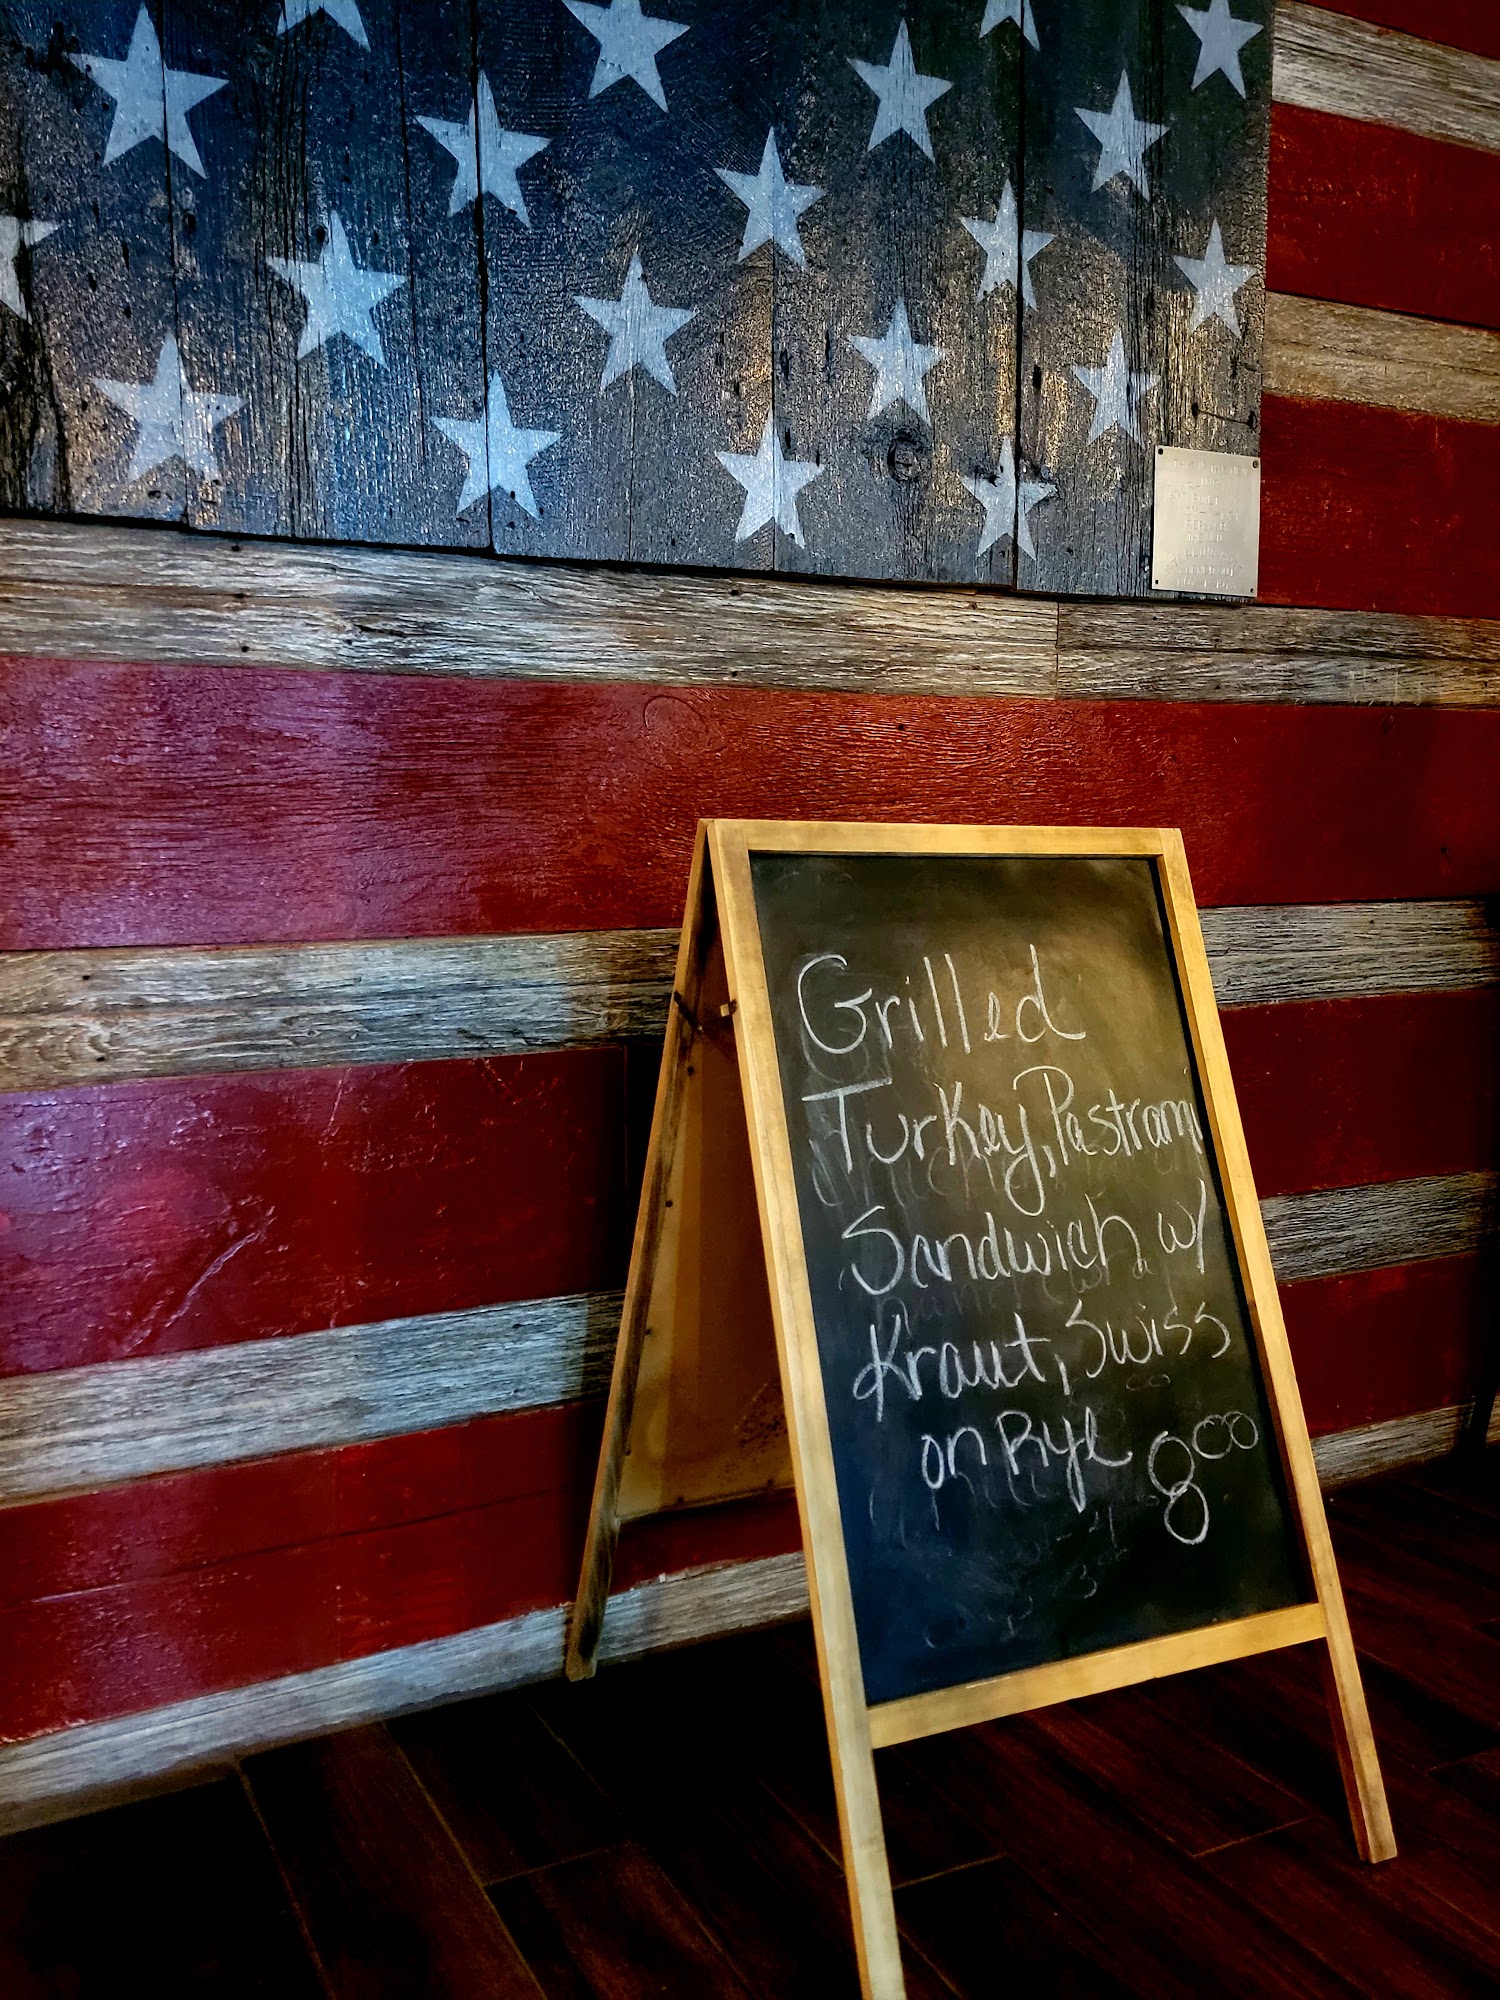 Grilled
Turkey, Pastrami
Sandwich w/
Kraut, Swiss
on Rye 8⁰⁰